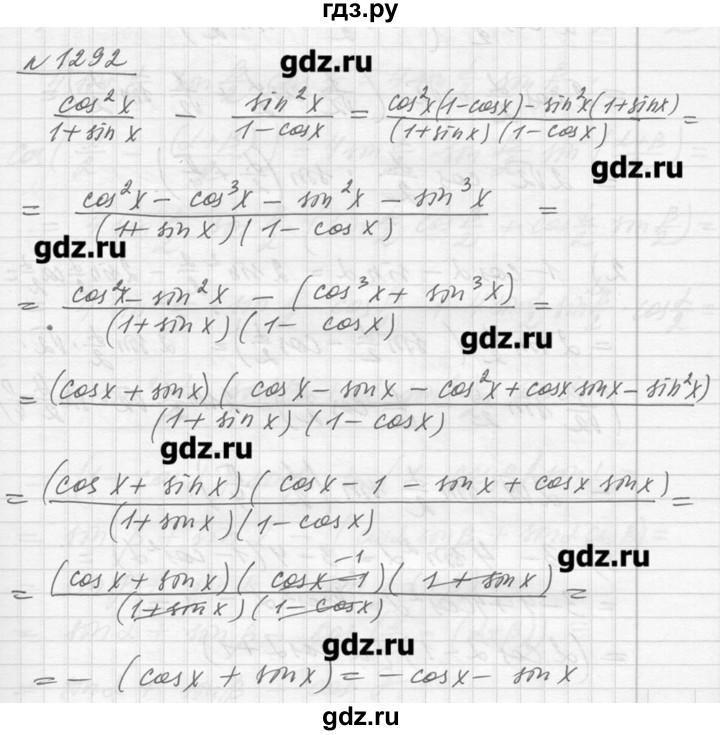 гдз.ру
№ 1292
gdz.ru
cos²x / 1+sin x − sin²x / 1−cosx = cos²x(1−cosx)−sin²x(1+sinx) / (1+sinx)(1−cosx) =
gdz.ru
= cos²x − cos³x − sin²x − sin³x / (1+sin x)(1−cosx) =
gdz.ru
= cos²x−sin²x − (cos³x + sin³x) / (1+sin x)(1−cosx) =
gdz.ru
= (cosx + sinx)(cosx−sinx−cos²x+cosx sinx−sin²x) / (1+sinx)(1−cosx)
gdz.ru
= (cos x + sinx)(cosx−1−sinx+cosx sinx) / (1+sinx)(1−cosx) =
gdz.ru
−1
= (cosx + sinx)(cosx−1)(1+sinx) / (1+sinx)(1−cosx) =
gdz.ru
= −(cosx + sinx) = −cosx− sinx
gdz.ru